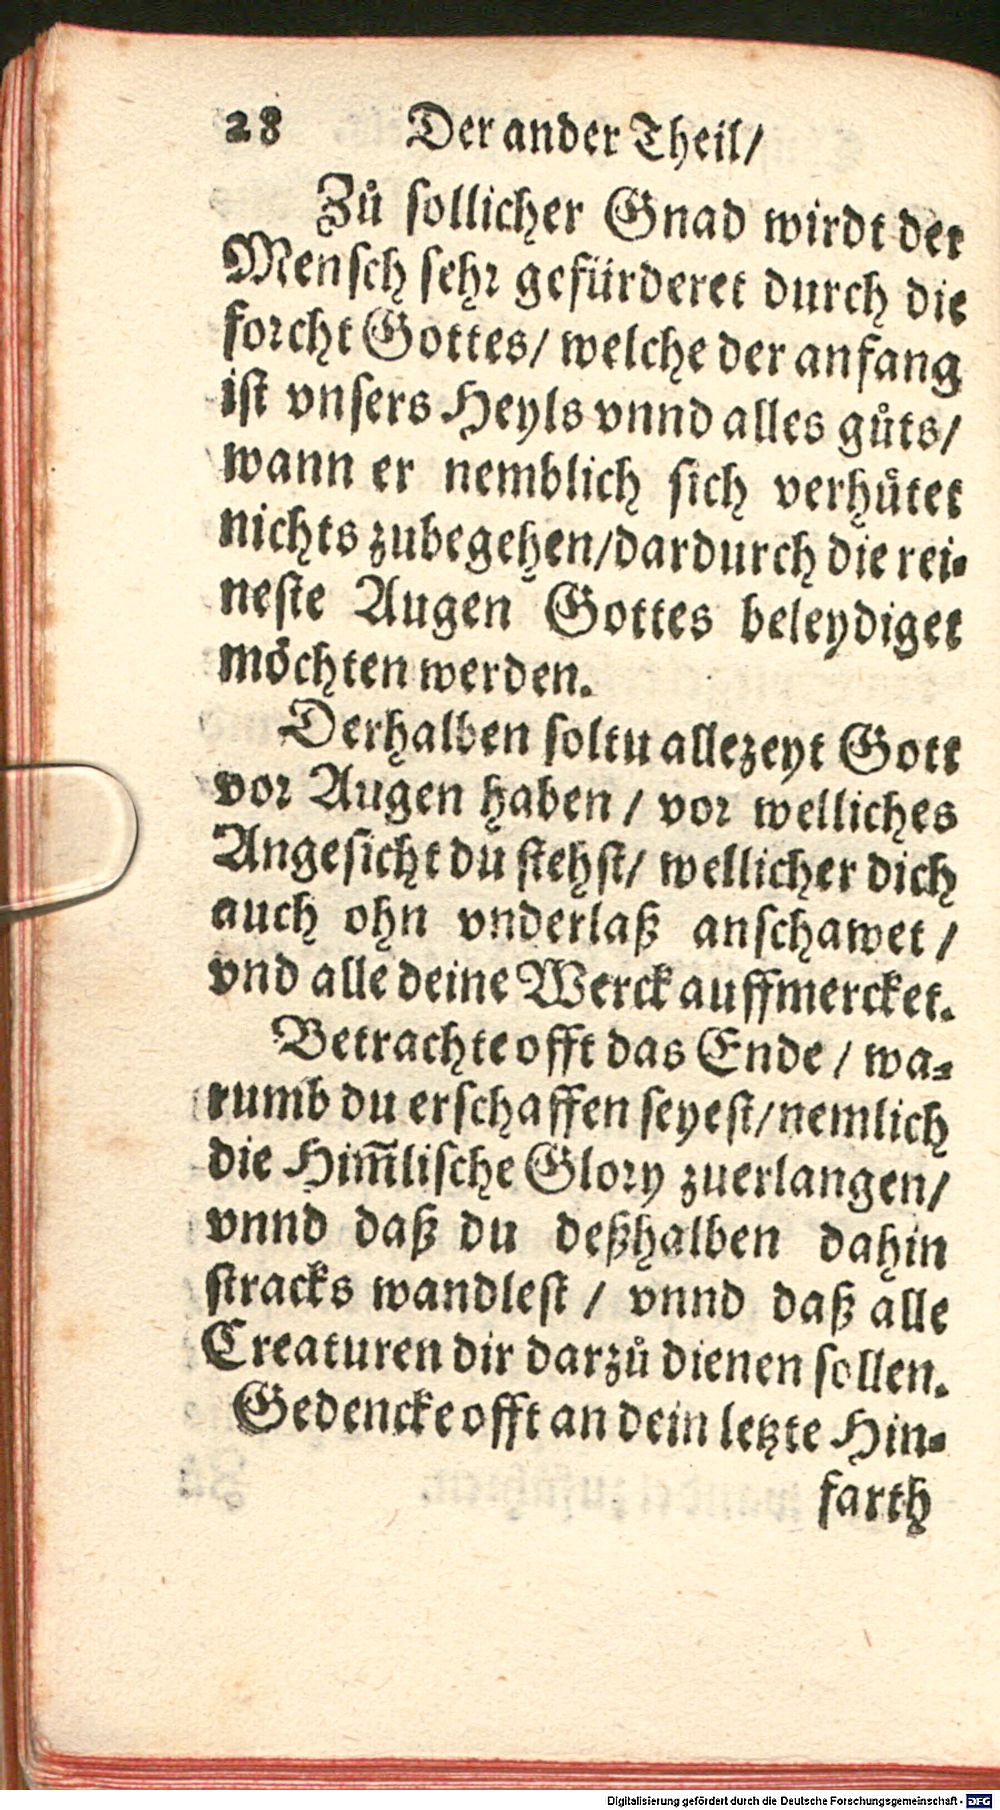 28 Der ander Theil/
Zů sollicher Gnad wirdt der
Mensch sehr gefürderet durch die
forcht Gottes/ welche der anfang
ist vnsers Heyls vnnd alles gůts/
wann er nemblich sich verhůtet
nichts zubegehen/dardurch die rei-
neste Augen Gottes beleydiget
möchten werden.
Derhalben soltu allezeyt Gott
vor Augen haben / vor welliches
Angesicht du stehst/ wellicher dich
auch ohn vnderlaß anschawet /
vnd alle deine Werck auffmercket.
Betrachte offt das Ende / wa-
rumb du erschaffen seyest/nemlich
die Him̃lische Glory zuerlangen/
vnnd daß du deßhalben dahin
stracks wandlest / vnnd daß alle
Creaturen dir darzů dienen sollen.
Gedencke offt an dein letzte Hin-
farth
Digitalisierung gefördert durch die Deutsche Forschungsgemeinschaft - DFG